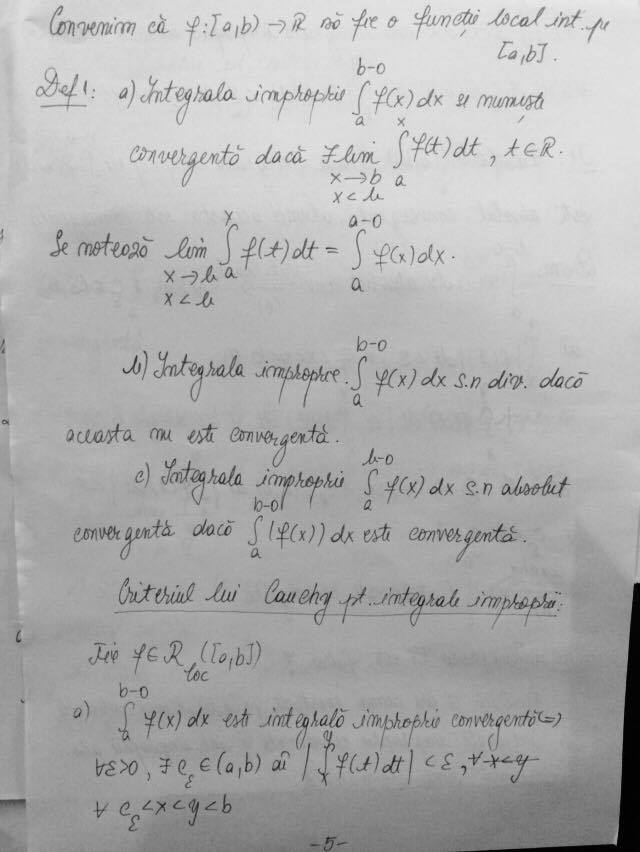 Convenim că f:[a,b) → R să fie o funcție local int. pe
[a,b].
Def1: a) Integrala improprie ∫_a^{b-0} f(x) dx se numește
convergentă dacă ∃ lim_{x→b, x<b} ∫_a^x f(t) dt, t ∈ R.
Se notează lim_{x→b, x<b} ∫_a^x f(t) dt = ∫_a^{a-0} f(x) dx.
b) Integrala improprie. ∫_a^{b-0} f(x) dx s.n div. dacă
aceasta nu este convergentă.
c) Integrala improprie ∫_a^{b-0} f(x) dx s.n absolut
convergentă dacă ∫_a^{b-0} |f(x)| dx este convergentă.
Criteriul lui Cauchy pt. integrale improprii:
Fie f ∈ R_loc ([a,b])
a) ∫_a^{b-0} f(x) dx este integrală improprie convergentă (=)
∀ε>0, ∃ c_ε ∈ (a,b) aî |∫_x^y f(t) dt| < ε, ∀ x<y
∀ c_ε < x < y < b
-5-